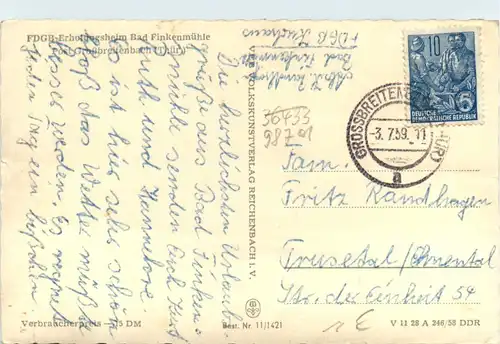 FDGB-Erholungsheim Bad Finkenmühle
Post Großbreitenbach (Thür)
Die herzlichsten Urlaubs
grüße aus Bad Finken-
mühle senden Euch Kurt
Ruth und Hannelore.
Es ist hier sehr schön
bloß das Wetter müßte
besser werden. Es regnet
jeden Tag ein bißchen
Verbraucherpreis —,15 DM
VEB VOLKSKUNSTVERLAG REICHENBACH I. V.
Best. Nr. 11/1421
Bad Finkenmühle
FDGB Kurhaus
36433
98701
10
DEUTSCHE
DEMOKRATISCHE REPUBLIK
GROSSBREITENBACH (THÜR)
-3.7.59.-11
a
Fam.
Kurt Randhagen
Trusetal/Schmalkal
Str. der Einheit 54
V 11 28 A 246/58 DDR